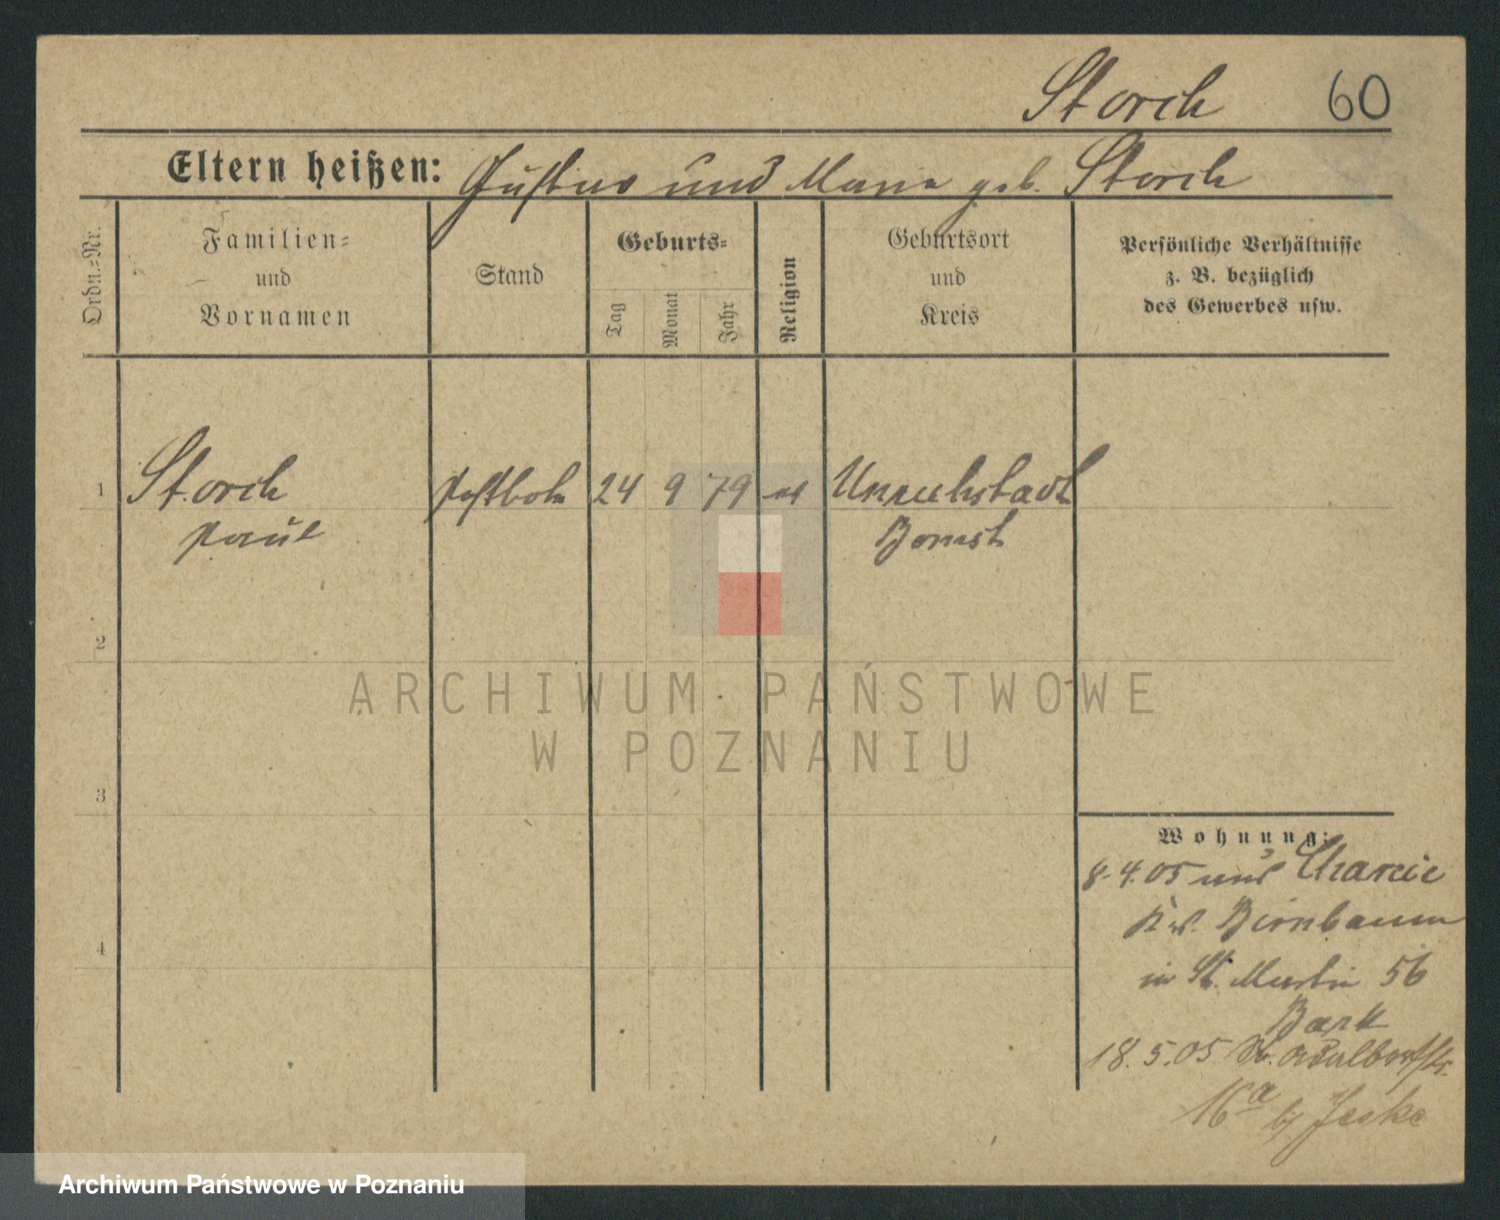 Storch 60
Eltern heißen: Gustav und Maria geb. Storch
Ordn.-Nr.
Familien-
und
Vornamen
Stand
Geburts-
Tag
Monat
Jahr
Religion
Geburtsort
und
Kreis
Persönliche Verhältnisse
z. B. bezüglich
des Gewerbes usw.
1 Storch Postbote 24 9 79 ev Unruhstadt
Paul Bomst
2
3
4
Wohnung:
8.4.05 aus Charcic
Kr. Birnbaum
in St. Martin 56
Bark
18.5.05 St. Adalbertstr.
16a bj Jeske
ARCHIWUM PAŃSTWOWE
W POZNANIU
Archiwum Państwowe w Poznaniu